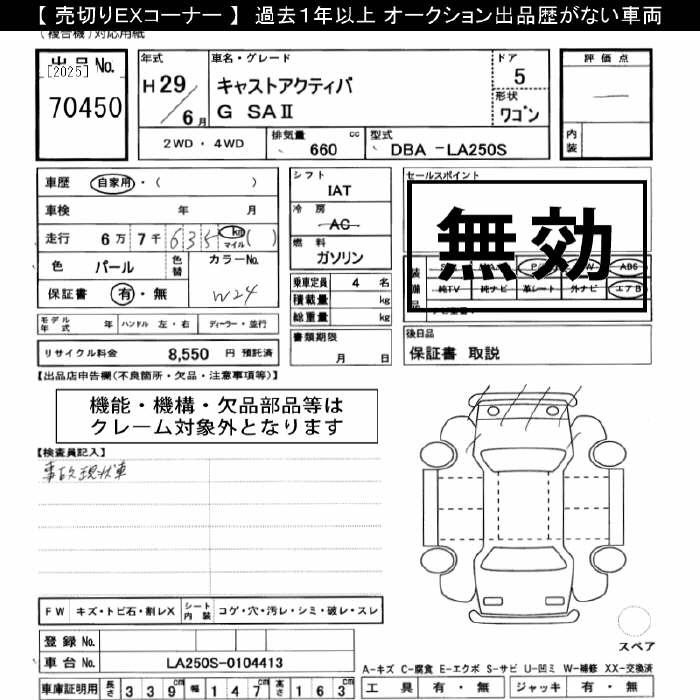 【 売切りEXコーナー 】 過去１年以上 オークション出品歴がない車両
(複合機)対応用紙
出品No.
[2025]
70450
年式
H 29 / 6 月
車名・グレード
キャストアクティバ
G SAⅡ
ドア
5
形状
ワゴン
評価点
―
内装
2WD・4WD
排気量 660 cc
型式 DBA -LA250S
車歴 自家用・( )
車検 年 月
走行 6万 7千 635 km マイル ( )
色 パール 色替 カラーNo.
W24
保証書 有・無
モデル年式 年 ハンドル 左・右 ディーラー・並行
リサイクル料金 8,550 円 預託済
シフト
IAT
冷房
AC
燃料
ガソリン
乗車定員 4 名
積載量 kg
総重量 kg
書類期限
月 日
セールスポイント
無効
装備品
PW
ABS
純TV 純ナビ 革シート 外ナビ エアB
後日品
保証書 取説
【出品店申告欄(不良箇所・欠品・注意事項等)】
機能・機構・欠品部品等は
クレーム対象外となります
【検査員記入】
事故現状車
FW キズ・トビ石・割レX シート内装 コゲ・穴・汚レ・シミ・破レ・スレ
登録 No.
車台 No. LA250S-0104413
車庫証明用 長さ 339cm 幅 147cm 高さ 163cm
スペア
A-キズ C-腐食 E-エクボ S-サビ U-凹ミ W-補修 XX-交換済
工具 有・無 ジャッキ 有・無